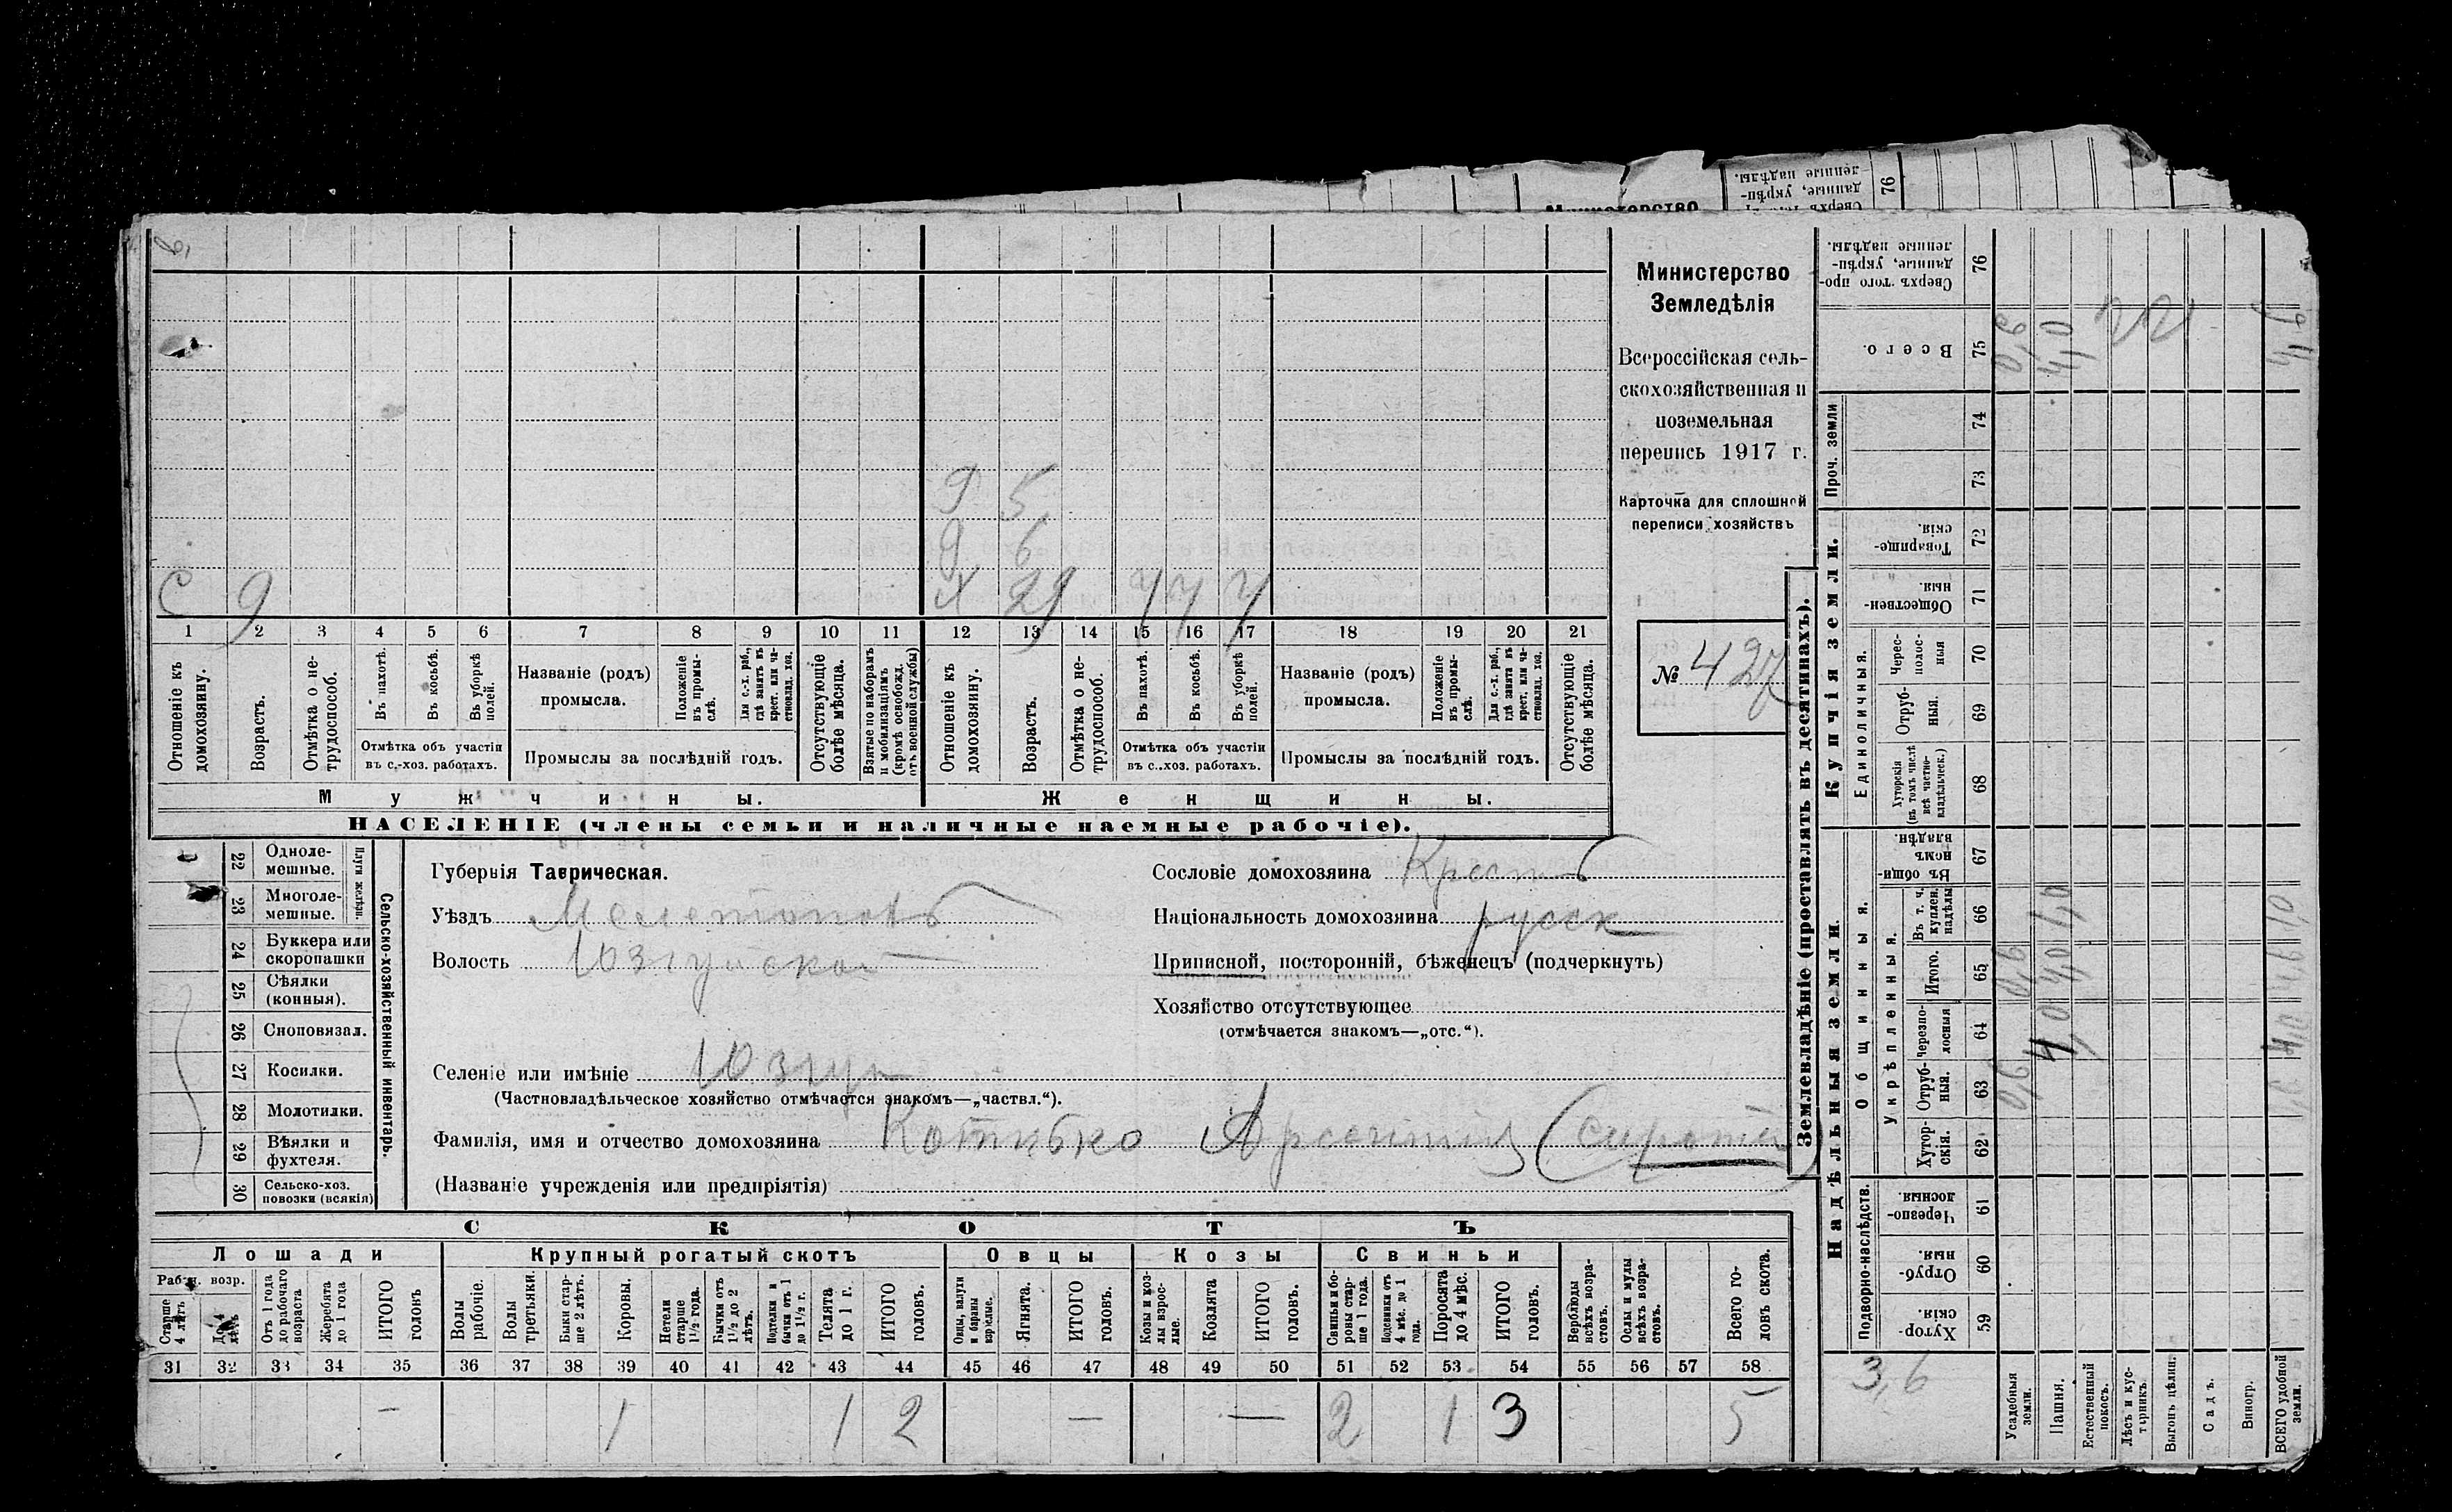 Министерство
Земледѣлія
Всероссійская сель-
скохозяйственная и
поземельная
перепись 1917 г.
Карточка для сплошной
переписи хозяйствъ
№ 427
9 5
9 6
С 9 Х 29
1 2 3 4 5 6 7 8 9 10 11 12 13 14 15 16 17 18 19 20 21
Отношеніе къ домохозяину.
Возрастъ.
Отмѣтка о не-трудоспособ.
Въ пахотѣ.
Въ косьбѣ.
Въ уборкѣ полей.
Отмѣтка объ участіи
въ с.-хоз. работахъ.
Названіе (родъ)
промысла.
Положеніе въ промы-слѣ.
Для с.-х. раб., гдѣ занятъ въ крест. или ча-стновлад. хоз.
Промыслы за послѣдній годъ.
Отсутствующіе болѣе мѣсяца.
Взятые по наборамъ и мобилизаціямъ (кромѣ освобожд. отъ военной службы)
Отношеніе къ домохозяину.
Возрастъ.
Отмѣтка о не-трудоспособ.
Въ пахотѣ.
Въ косьбѣ.
Въ уборкѣ полей.
Отмѣтка объ участіи
въ с.-хоз. работахъ.
Названіе (родъ)
промысла.
Положеніе въ промы-слѣ.
Для с.-х. раб., гдѣ занята въ крест. или ча-стновлад. хоз.
Промыслы за послѣдній годъ.
Отсутствующіе болѣе мѣсяца.
Мужчины. Женщины.
НАСЕЛЕНІЕ (члены семьи и наличные наемные рабочіе).
Сельско-хозяйственный инвентарь.
Плуги желѣзн.
22 Одноле-мешные.
23 Многоле-мешные.
24 Буккера или скоропашки
25 Сѣялки (конныя).
26 Сноповязал.
27 Косилки.
28 Молотилки.
29 Вѣялки и фухтеля.
30 Сельско-хоз. повозки (всякія)
Губернія Таврическая.
Уѣздъ
Волость
Селеніе или имѣніе
(Частновладѣльческое хозяйство отмѣчается знакомъ—„частвл.“).
Сословіе домохозяина
Національность домохозяина русск
Приписной, посторонній, бѣженецъ (подчеркнуть)
Хозяйство отсутствующее
(отмѣчается знакомъ—„отс.“).
Фамилія, имя и отчество домохозяина
(Названіе учрежденія или предпріятія)
СКОТЪ
Лошади Крупный рогатый скотъ Овцы Козы Свиньи
Рабоч. возр.
Старше 4 лѣтъ
До 4 лѣтъ
Отъ 1 года до рабочаго возраста
Жеребята до 1 года
ИТОГО головъ
Волы рабочіе.
Волы третьяки.
Быки стар-ше 2 лѣтъ.
Коровы.
Нетели старше 1½ года.
Бычки отъ 1½ до 2 лѣтъ.
Подтелки и бычки отъ 1 до 1½ г.
Телята до 1 г.
ИТОГО головъ.
Овцы, валухи и бараны взрослые.
Ягнята.
ИТОГО головъ.
Козы и коз-лы взрос-лые.
Козлята
ИТОГО головъ.
Свиньи и бо-ровы стар-ше 1 года.
Подсвинки отъ 4 мѣс. до 1 года.
Поросята до 4 мѣс.
ИТОГО головъ.
Верблюды всѣхъ возра-стовъ.
Ослы и мулы всѣхъ возра-стовъ.
Всего го-ловъ скота.
31 32 33 34 35 36 37 38 39 40 41 42 43 44 45 46 47 48 49 50 51 52 53 54 55 56 57 58
— 1 1 2 — — 2 1 3 5
Землевладѣніе (проставлять въ десятинахъ).
Купчія земли.
Надѣльныя земли.
Сверхъ того про-данные, укрѣп-ленные надѣлы. 76
Всего. 75
Проч. земли
74
73
Товарище-скія. 72
Обществен-ныя. 71
Единоличныя.
Черес-полос-ныя 70
Отруб-ныя. 69
Хуторскія (въ томъ числѣ всѣ частно-владѣльческ.) 68
Общинныя.
Въ общин-номъ владѣн. 67
Укрѣпленныя.
Въ т. ч. куплен. надѣлы 66
Итого. 65
черезпо-лосныя 64
Отруб-ныя. 63
Хутор-скія. 62
Подворно-наслѣдств.
Черезпо-лосныя. 61
Отруб-ныя. 60
Хутор-скія. 59
3,6
Усадебныя земли.
Пашня.
Естественный покосъ.
Лѣсъ и кус-тарникъ.
Выгонъ цѣлин.
Садъ.
Виногр.
ВСЕГО удобной земли.
0,6 4,0
4,0 1,0